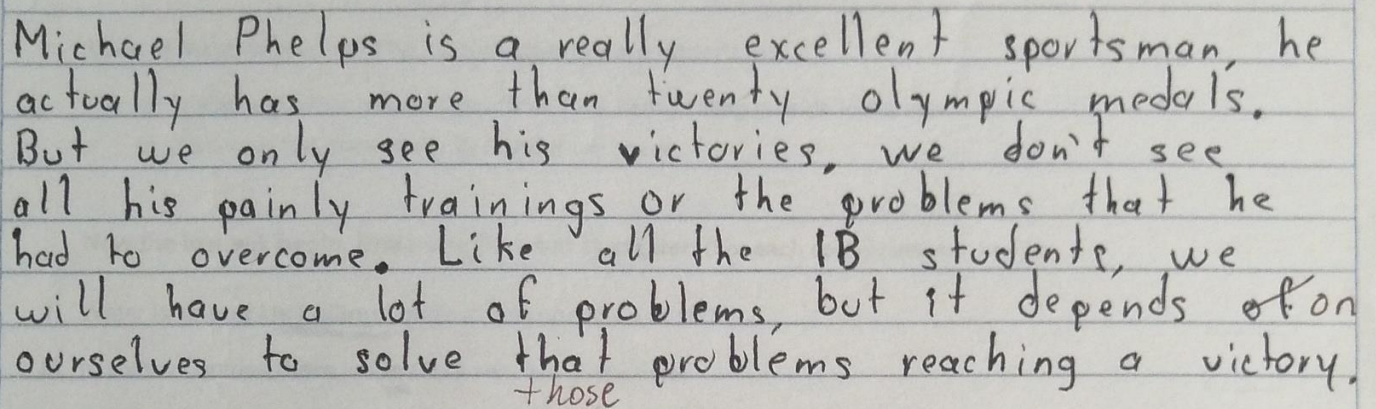 Michael Phelps is a really excellent sportsman, he
actually has more than twenty olympic medals.
But we only see his victories, we don't see
all his painly trainings or the problems that he
had to overcome. Like all the IB students, we
will have a lot of problems, but it depends of on
ourselves to solve that problems reaching a victory.
those